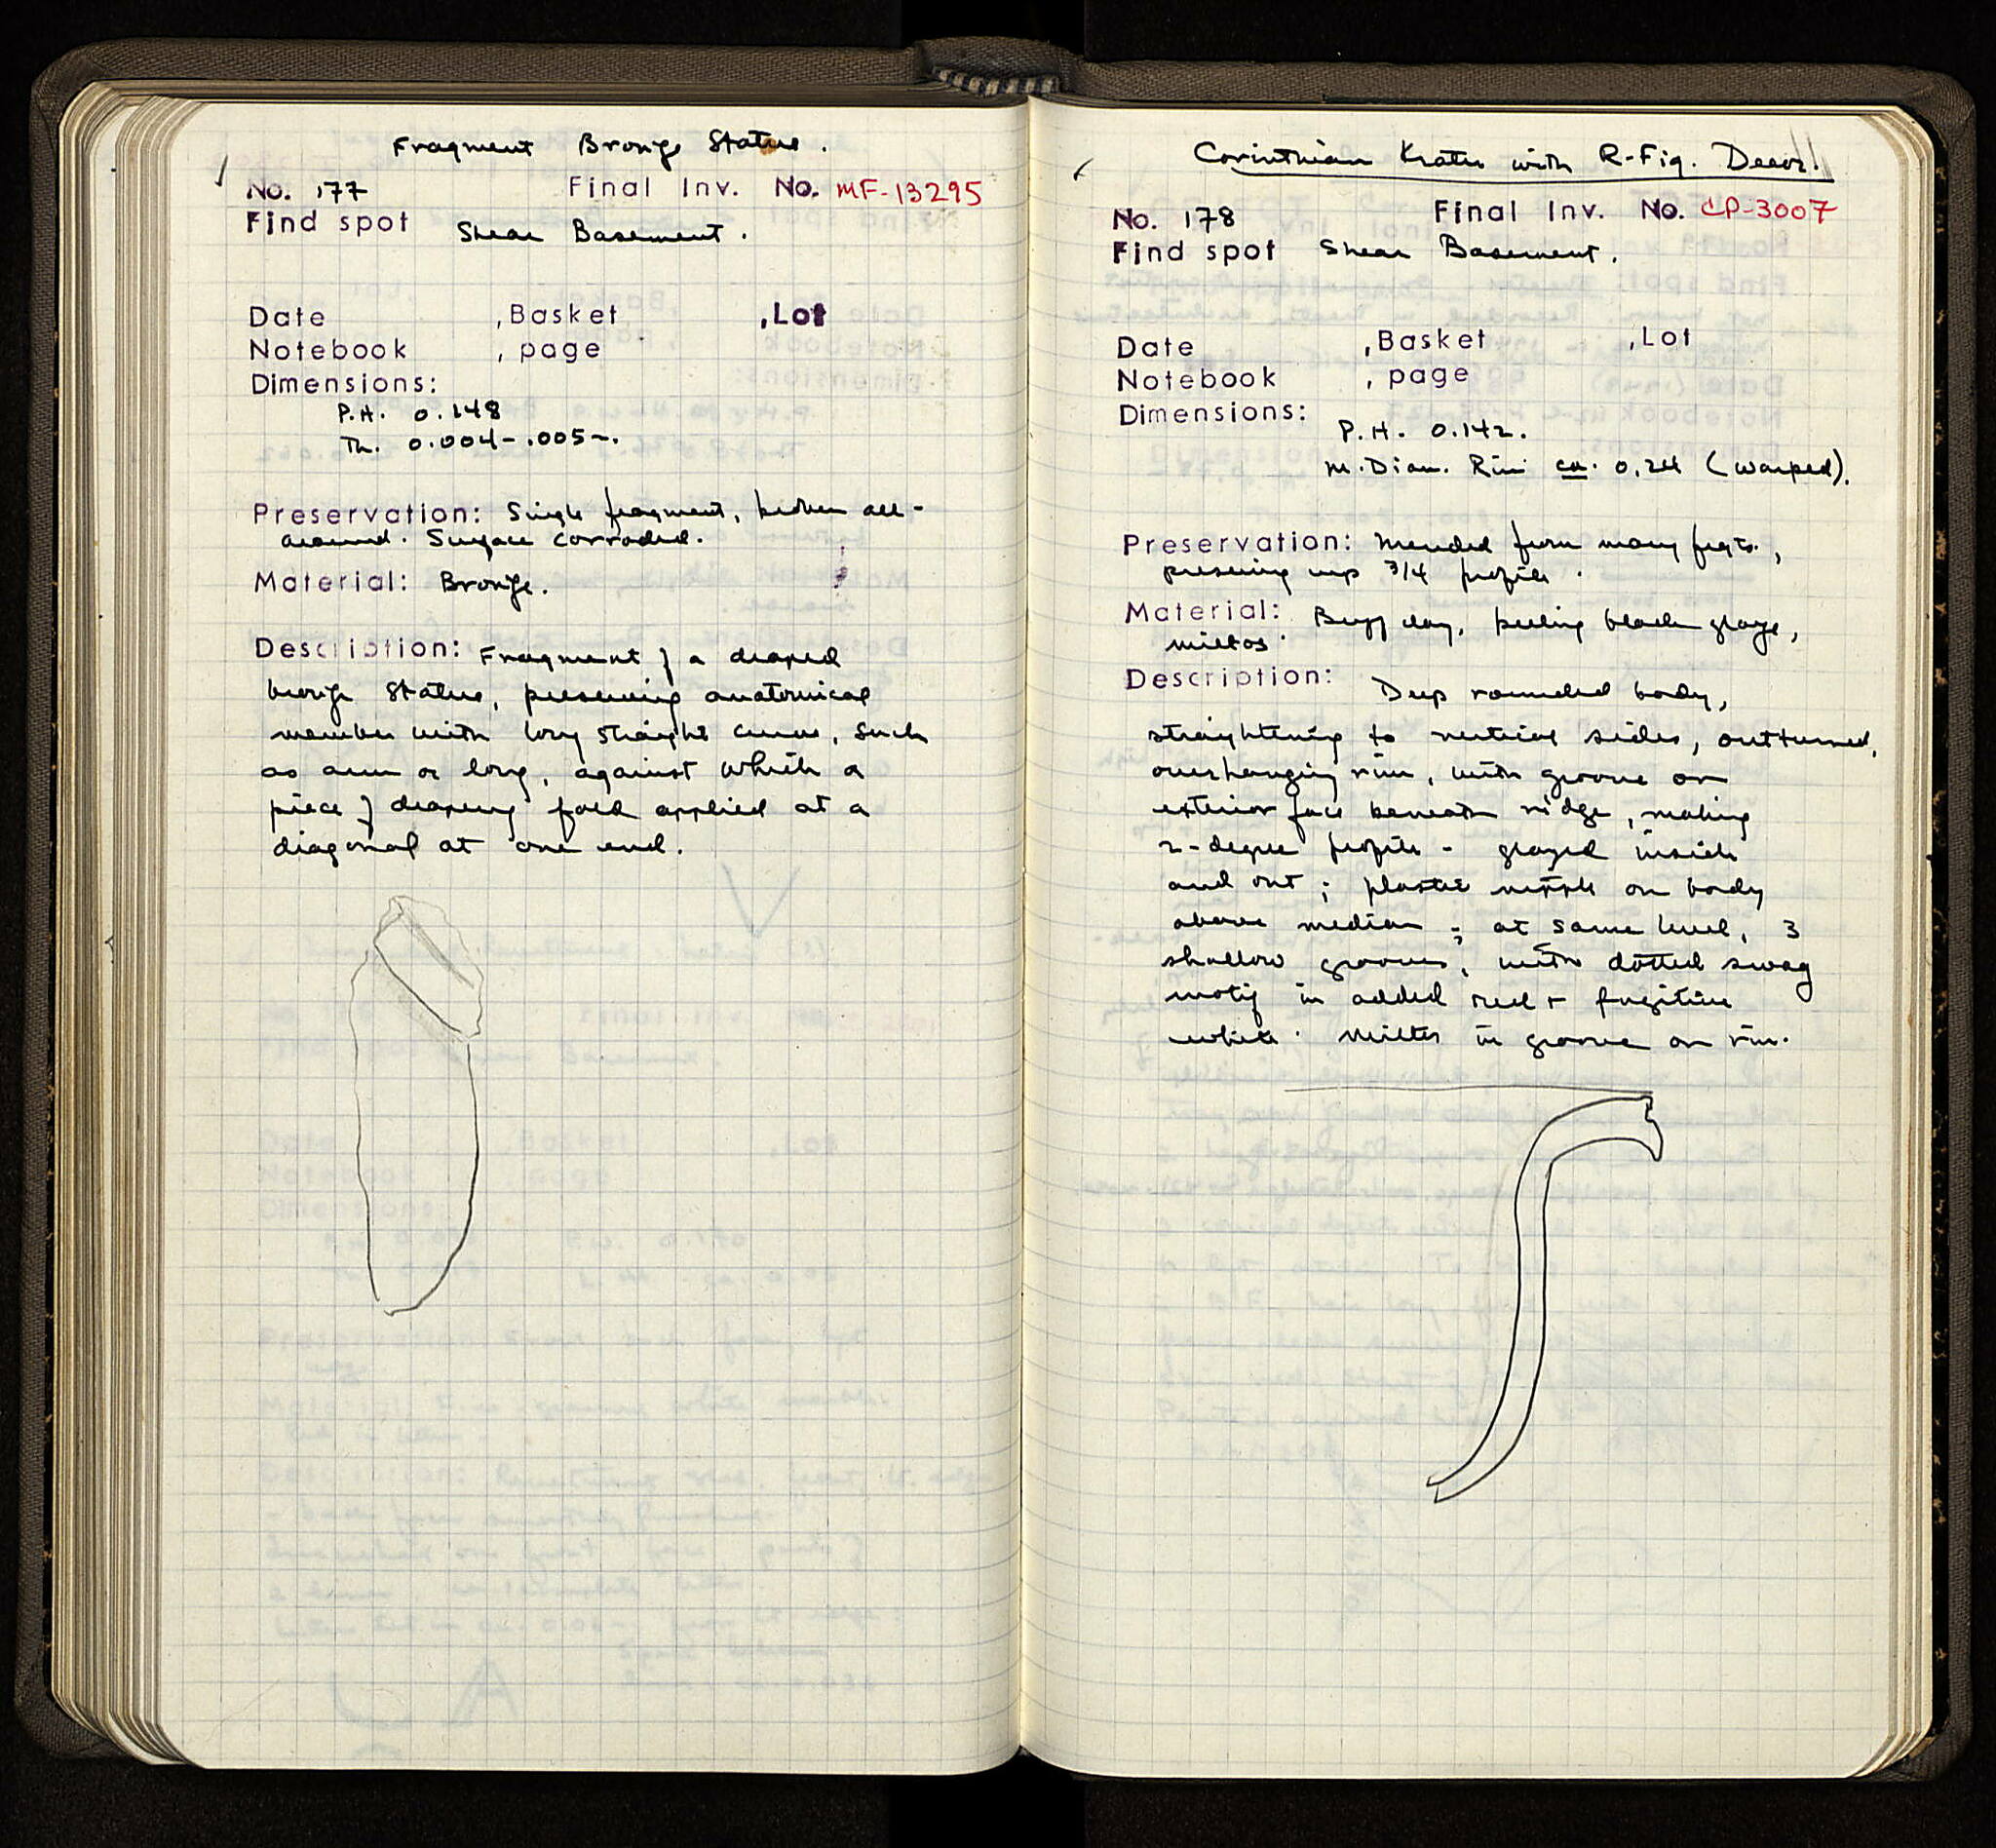 Fragment Bronze Statue.
No. 177 Final Inv. No. MF-13295
Find spot Shear Basement.
Date , Basket , Lot
Notebook , page
Dimensions:
P.H. 0.148
Th. 0.004-.005~.
Preservation: Single fragment, broken all-
around. Surface corroded.
Material: Bronze.
Description: Fragment of a draped
bronze statue, preserving anatomical
member with long straight curve, such
as arm or long, against which a
piece of drapery fold applied at a
diagonal at one end.
Corinthian Krater with R-Fig. Decor.
No. 178 Final Inv. No. CP-3007
Find spot Shear Basement.
Date , Basket , Lot
Notebook , page
Dimensions:
P.H. 0.142.
M. Diam. Rim ca. 0.24 (warped).
Preservation: Mended from many fragts.,
preserving 3/4 profile.
Material: Buff clay, peeling black glaze,
miltos.
Description: Deep rounded body,
straightening to vertical sides, outturned,
overhanging rim, with groove on
exterior face beneath ridge, making
2-degree profile - glazed inside
and out; plastic nipple on body
above median; at same level, 3
shallow grooves, with dotted swag
motif in added red + fugitive
white. Miltos in groove on rim.